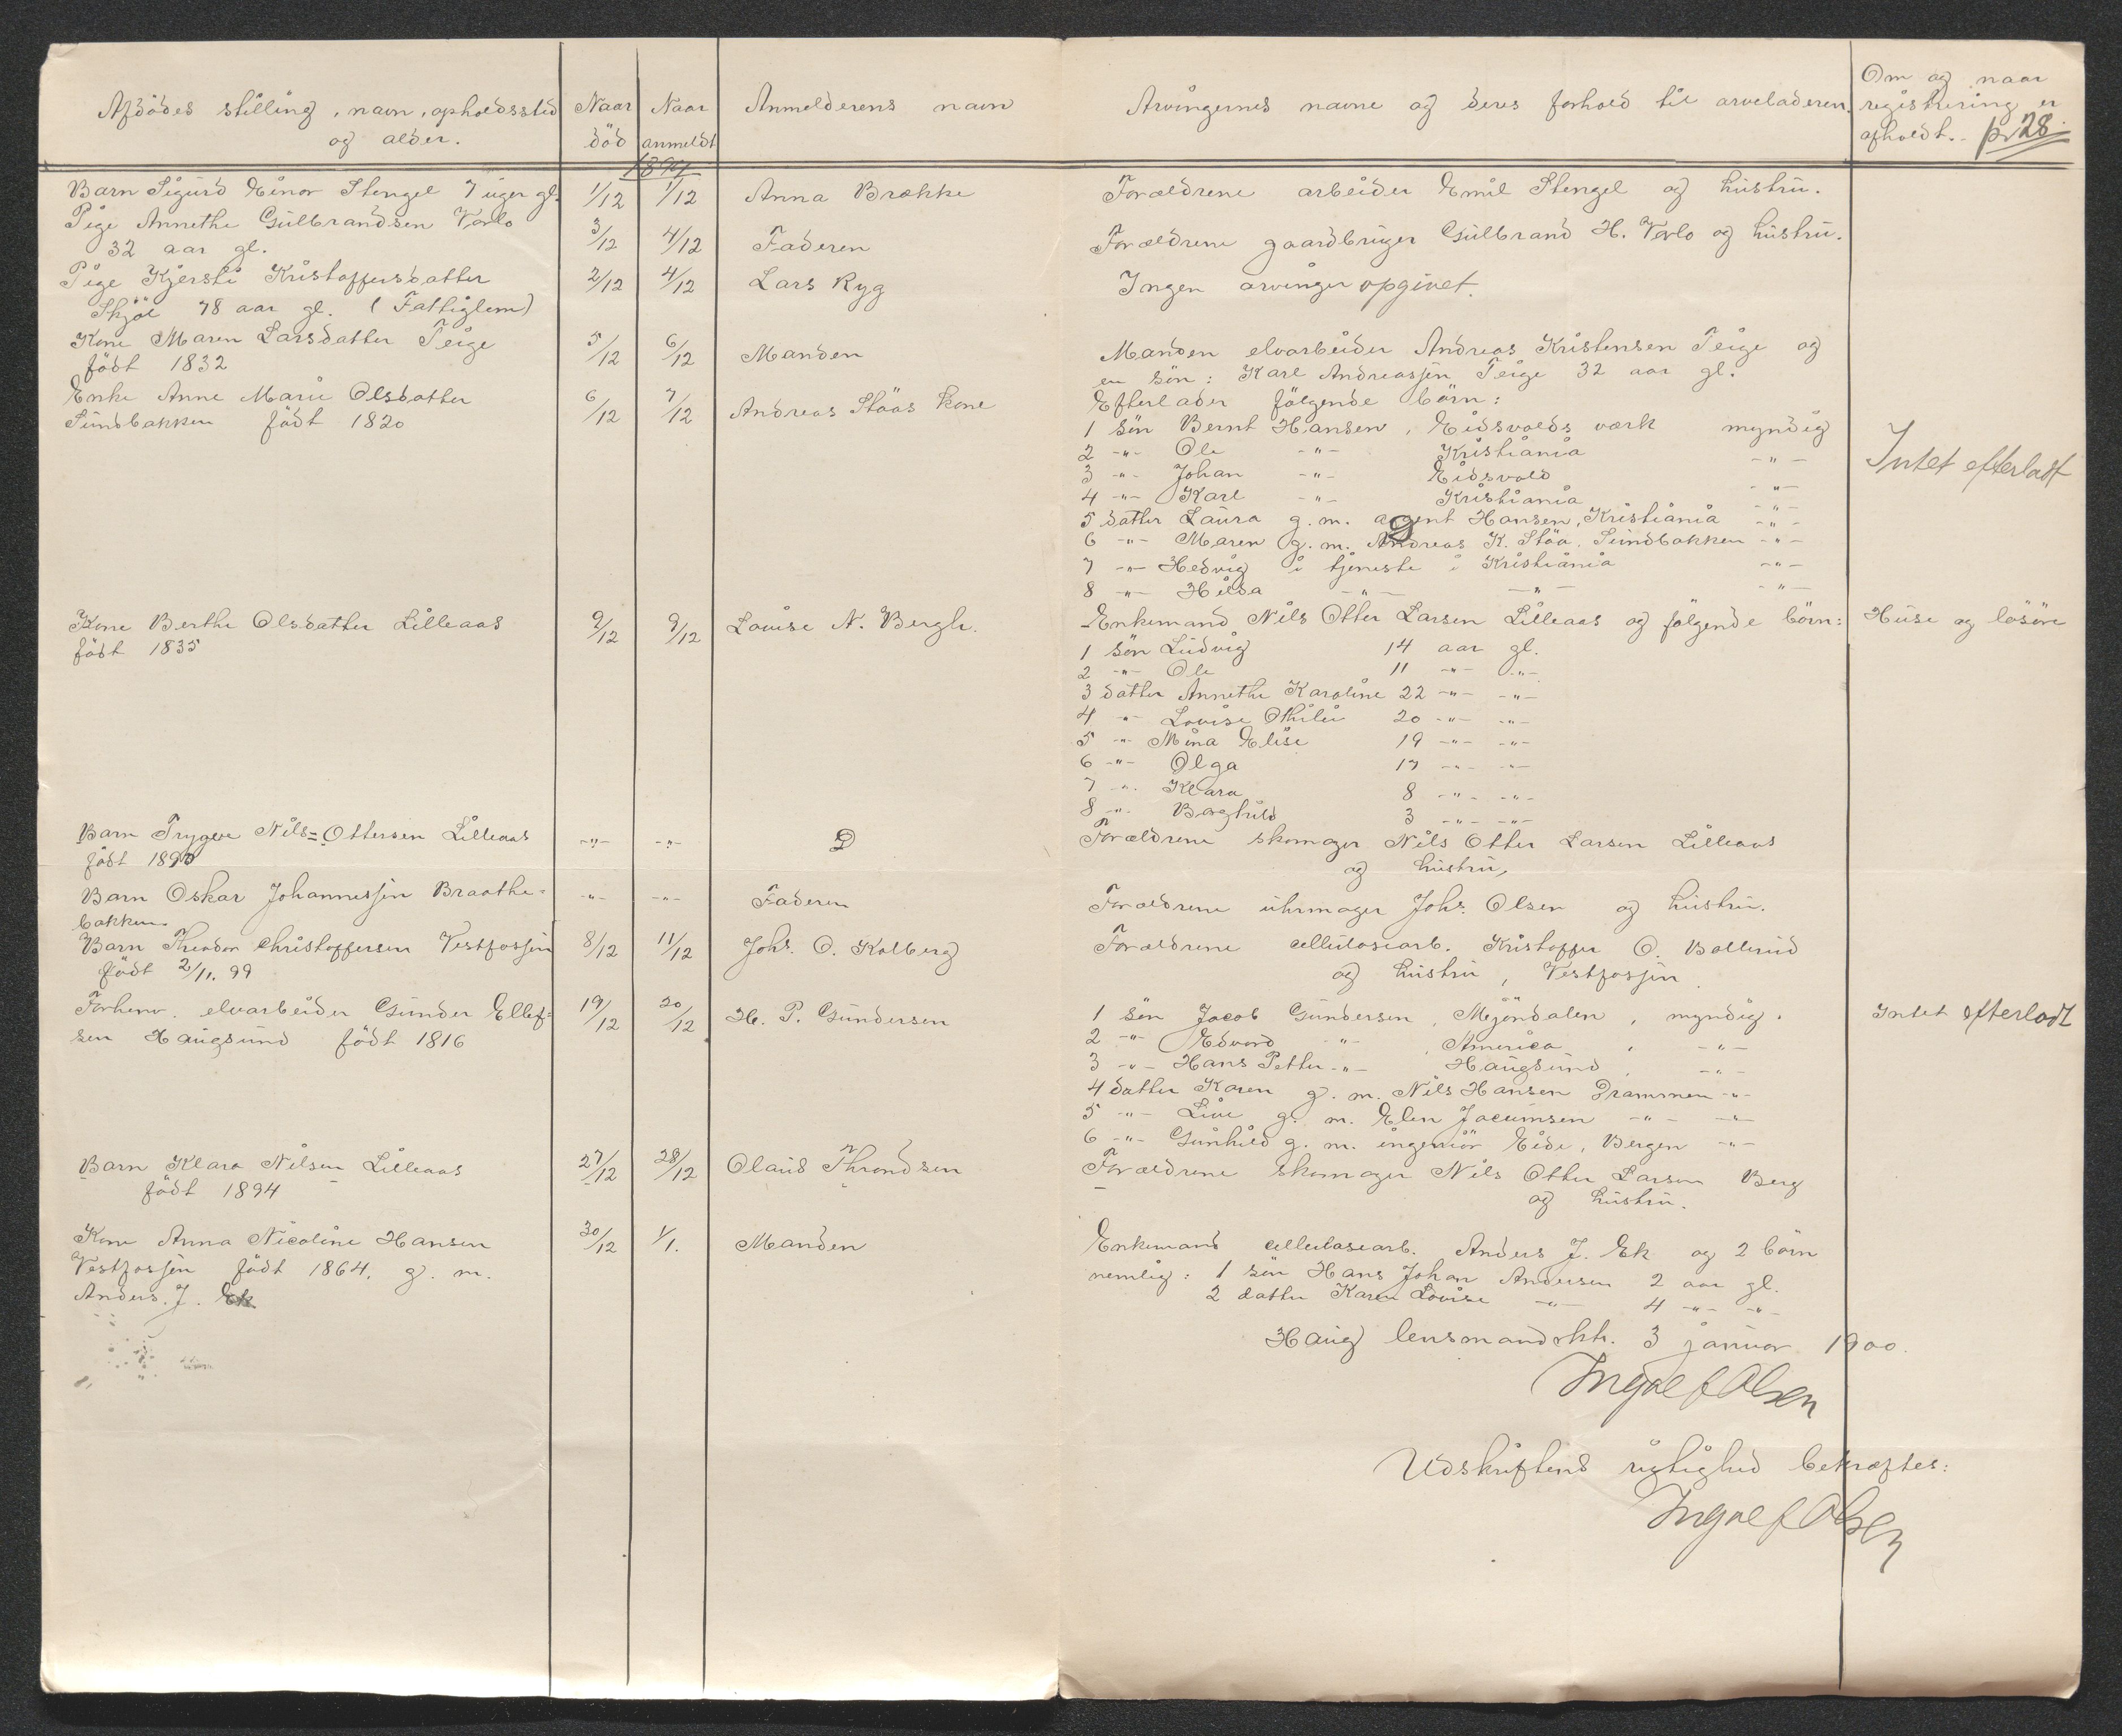 Afdödes stilling, navn, opholdssted og alder.
Naar död
Naar anmeldt
Anmelderens navn
Arvingernes navne og deres forhold til arveladeren.
Om og naar registrering er afholdt.
Barn Sigurd Einar Stengel 7 uger gl. 1/12 1/12 Anna Brække Forældrene arbeider Emil Stengel og hustru.
Pige Annethe Gulbrandsen Verlo 3/12 4/12 Faderen Forældrene gaardbruger Gulbrand H. Verlo og hustru.
32 aar gl.
Pige Kjersti Kristoffersdatter 2/12 4/12 Lars Ryg Ingen arvinger opgivet.
Skjöl 78 aar gl. (Fattiglem)
Kone Maren Larsdatter Teige 5/12 6/12 Manden Manden elvarbeider Andreas Kristensen Teige og
födt 1832 en sön: Karl Andreassen Teige 32 aar gl.
Enke Anne Marie Olsdatter 6/12 7/12 Andreas Stöas kone Efterlader fölgende börn:
Sundbakken födt 1820 1 sön Bernt Hansen, Eidsvolds værk myndig
2 -"- Ole -"- Kristiania -"- Intet efterladt
3 -"- Johan -"- Eidsvold -"-
4 -"- Karl -"- Kristiania -"-
5 datter Laura g. m. agent Hansen, Kristiania -"-
6 -"- Maren g. m. Andreas K. Stöa, Sundbakken -"-
7 -"- Hedvig i tjeneste i Kristiania -"-
8 -"- Hilda -"- -"- -"-
Kone Berthe Olsdatter Lilleaas 9/12 9/12 Louise N. Bergh. Enkemand Nils Otter Larsen Lilleaas og fölgende börn: Huse og lösöre
födt 1835 1 sön Ludvig 14 aar gl.
2 -"- Ole 11 -"- -"-
3 datter Annethe Karoline 22 -"- -"-
4 -"- Lovise Othilie 20 -"- -"-
5 -"- Mina Elise 19 -"- -"-
6 -"- Olga 17 -"- -"-
7 -"- Klara 8 -"- -"-
8 -"- Borghild 3 -"- -"-
Barn Trygve Nils=Ottersen Lilleaas -"- -"- Forældrene skomager Nils Otter Larsen Lilleaas
födt 1890 og hustru,
Barn Oskar Johannessen Braathe= -"- -"- Faderen Forældrene uhrmager Johs. Olsen og hustru.
bakken
Barn Theodor Christoffersen Vestfossen 8/12 11/12 Johs. O. Kolberg Forældrene cellulosearb. Kristoffer O. Bollerud
födt 2/11. 99 og hustru, Vestfossen.
Forhenv. elvarbeider Gunder Ellef= 19/12 20/12 H. P. Gundersen 1 sön Jacob Gundersen, Mjöndalen, myndig. Intet efterladt
sen Haugsund födt 1816 2 -"- Edvard -"- , America , -"-
3 -"- Hans Petter -"- Haugsund , -"-
4 datter Karen g. m. Nils Hansen Drammen -"-
5 -"- Live g. m. Elen Jocumsen -"- -"-
6 -"- Gunhild g. m. ingeniör Eide, Bergen -"-
Barn Klara Nilsen Lilleaas 27/12 28/12 Olaus Throndsen Forældrene skomager Nils Otter Larsen Berg
födt 1894 og hustru.
Kone Anna Nicoline Hansen 30/12 1/1. Manden Enkemand cellulosearb. Anders J. Ek og 2 börn
Vestfossen födt 1864, g. m. nemlig: 1 sön Hans Johan Andersen 2 aar gl.
Anders. J. Ek 2 datter Karen Lovise -"- 4 -"- -"-
Haug lensmandsktr. 3 januar 1900.
Ingvalf Olsen
Udskriftens rigtighed bekræftes:
Ingvalf Olsen